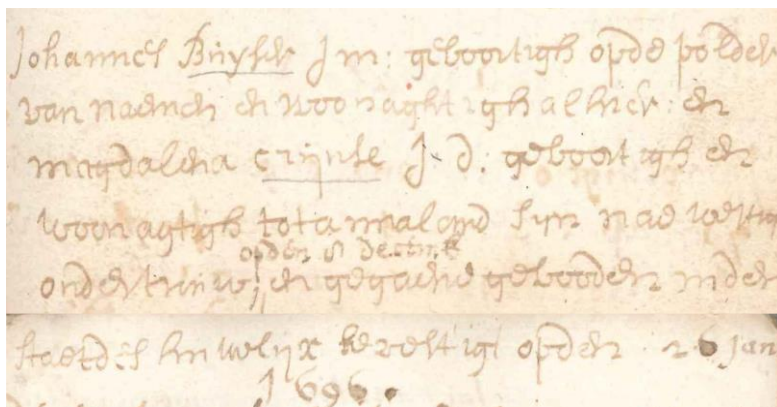 Johannes Buyser J m: geboortigh opde polder
van naemen en woonaghtigh alhier: en
magdalena Crijnse J. d: geboortigh en
woonagtigh tot annaland sijn nae
opden 8 Decemb
ondertrouw en gegaene gebooden inden
staet des huwelijx bevestigt opden 26 Jan
1696.